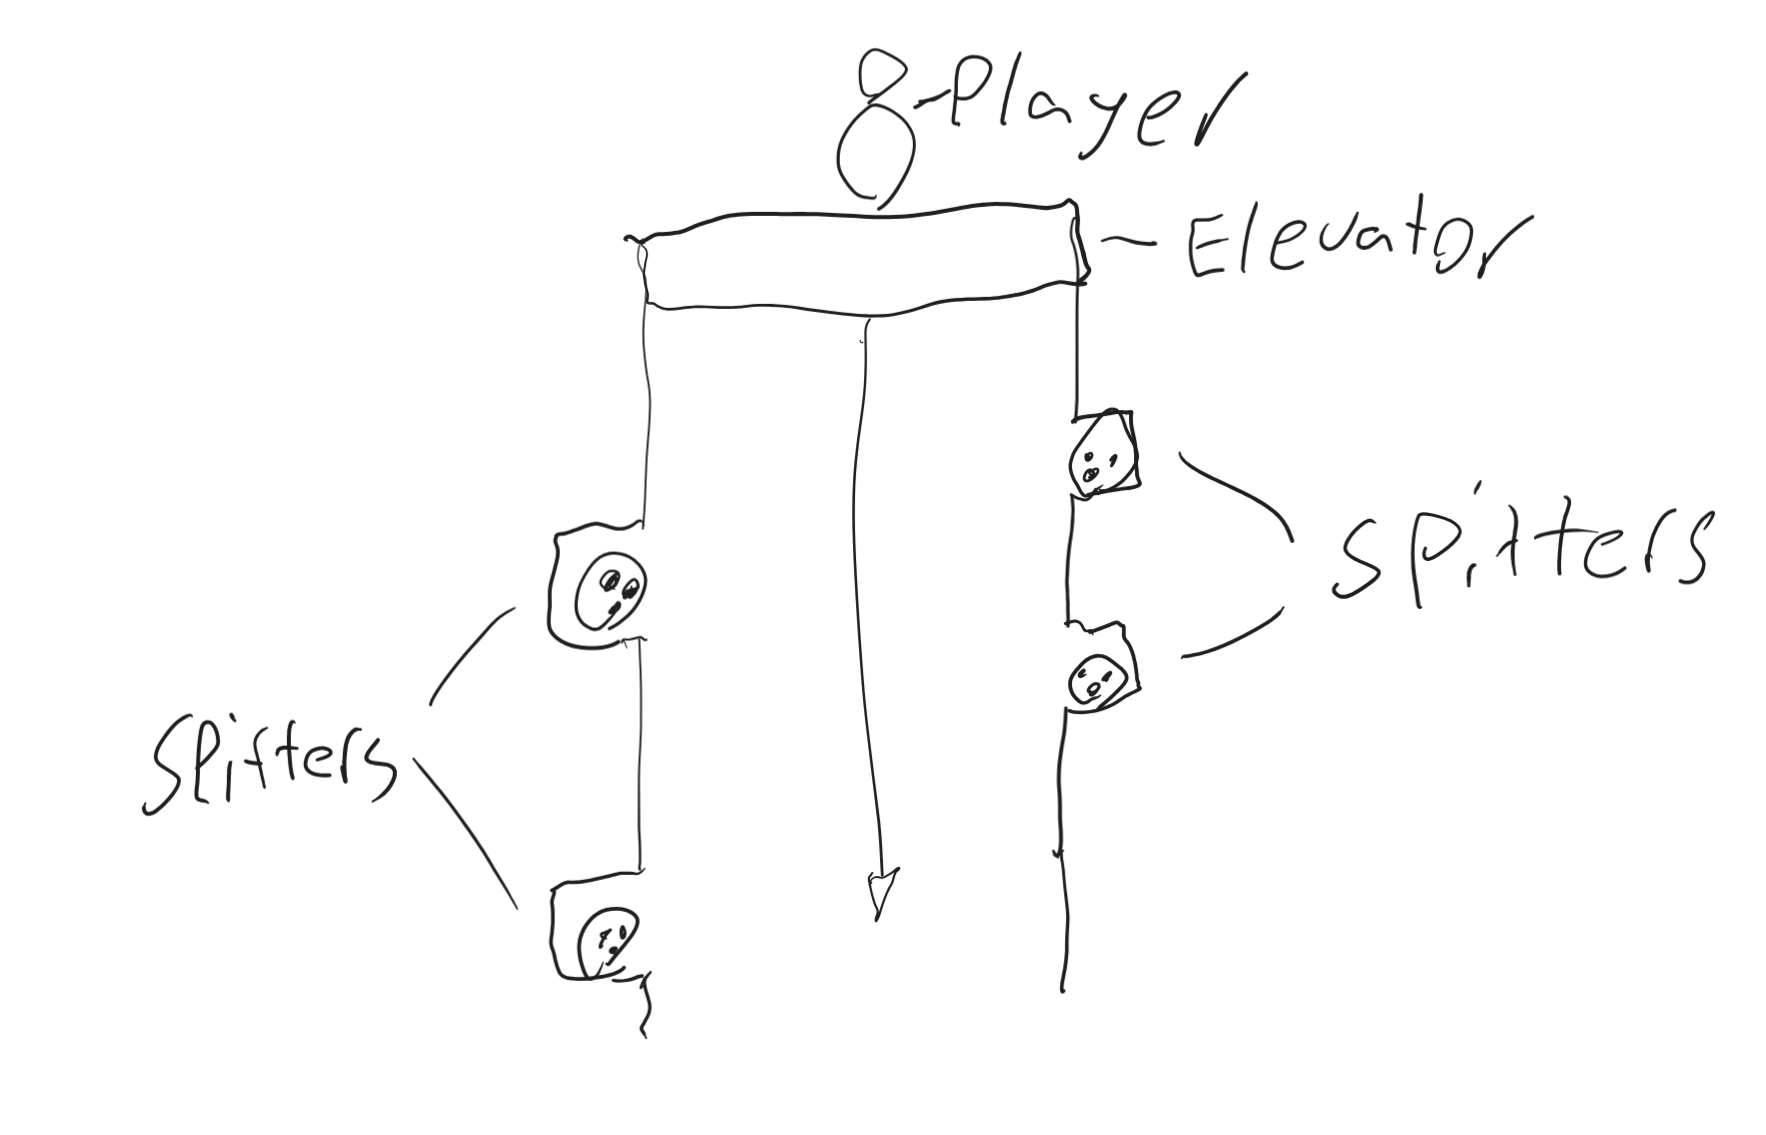 Player
Elevator
spitters
spitters